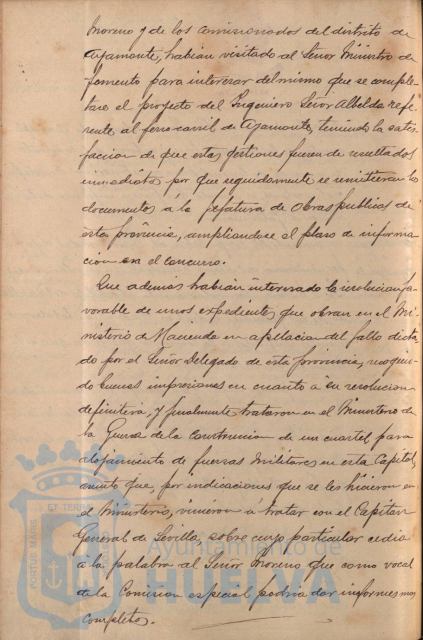 Moreno y de los comisionados del distrito de
Ayamonte, habian visitado al Señor Ministro de
Fomento para interesar del mismo que se comple-
tase el proyecto del Ingeniero Señor Albelda refe-
rente al ferro-carril de Ayamonte, teniendo la satis-
faccion de que estas gestiones fueran de resultados
inmediatos por que seguidamente se remitieran los
documentos á la jefatura de Obras publicas de
esta provincia, ampliandose el plazo de informa-
cion en el concurso.
Que además habian interesado la resolucion fa-
vorable de unos expedientes que obran en el Mi-
nisterio de Hacienda en apelacion del fallo dicta-
do por el Señor Delegado de esta provincia, recogien-
do buenas impresiones en cuanto á su resolucion
definitiva, y finalmente trataron en el Ministerio de
la Guerra de la construccion de un cuartel para
alojamiento de fuerzas militares en esta Capital,
asunto que, por indicaciones que se les hicieron en
el Ministerio, vinieron á tratar con el Capitan
General de Sevilla, sobre cuyo particular cedia
á la palabra al Señor Moreno que como vocal
de la Comision especial podria dar informes mas
completos.
PORTUS MARIS ET TERRÆ
Ayuntamiento de
HUELVA